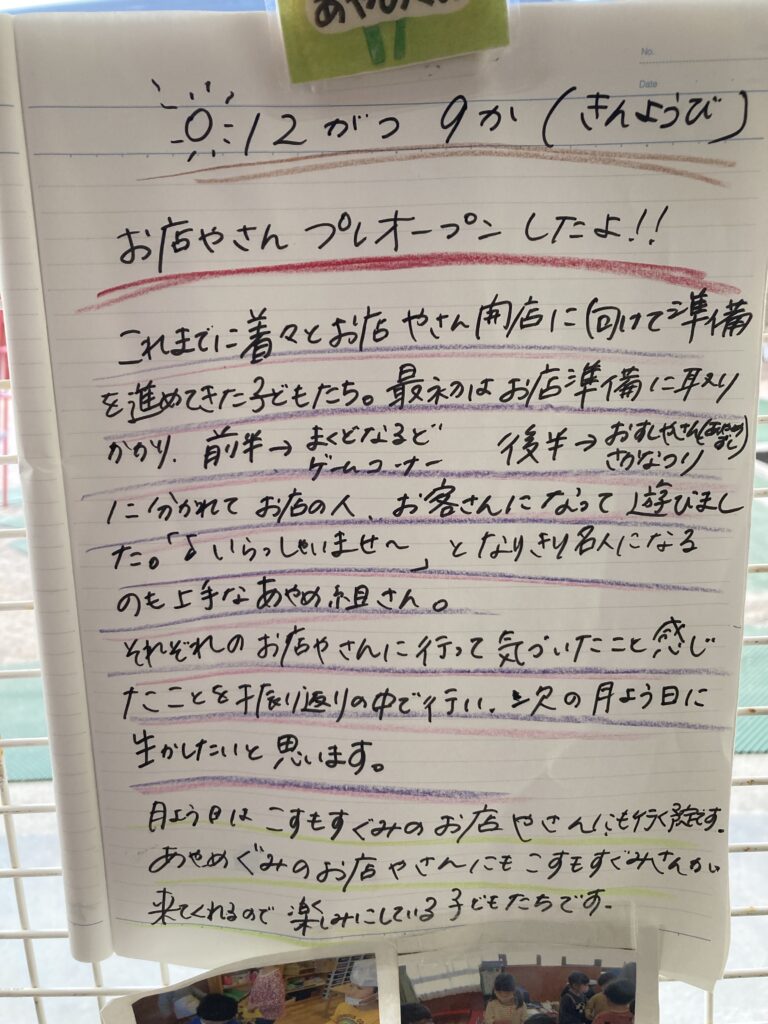 No.
Date
12がつ 9か (きんようび)
お店やさん プレオープン したよ!!
これまでに着々とお店やさん開店に向けて準備
を進めてきた子どもたち。最初はお店準備に取り
かかり、前半→まくどなるど 後半→おすしやさん(あやめずし)
ゲームコーナー さかなつり
に分かれてお店の人、お客さんになって遊びまし
た。「いらっしゃいませ〜」となりきり名人になる
のも上手なあやめ組さん。
それぞれのお店やさんに行って気づいたこと感じ
たことを振り返りの中で行い、次の月よう日に
生かしたいと思います。
月よう日はこすもすぐみのお店やさんにも行く予定です。
あやめぐみのお店やさんにもこすもすぐみさんが
来てくれるので楽しみにしている子どもたちです。